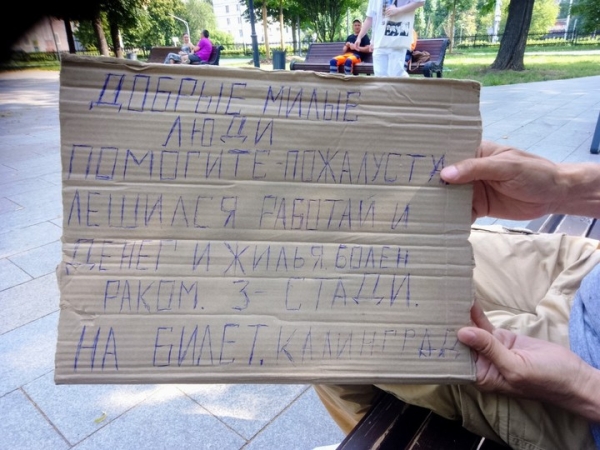 ДОБРЫЕ МИЛЫЕ
ЛЮДИ
ПОМОГИТЕ-ПОЖАЛУСТА
ЛЕШИЛСЯ РАБОТАИ И
ДЕНЕГ И ЖИЛЬЯ БОЛЕН
РАКОМ. 3-СТАДИ.
НА БИЛЕТ. КАЛИНГРАД